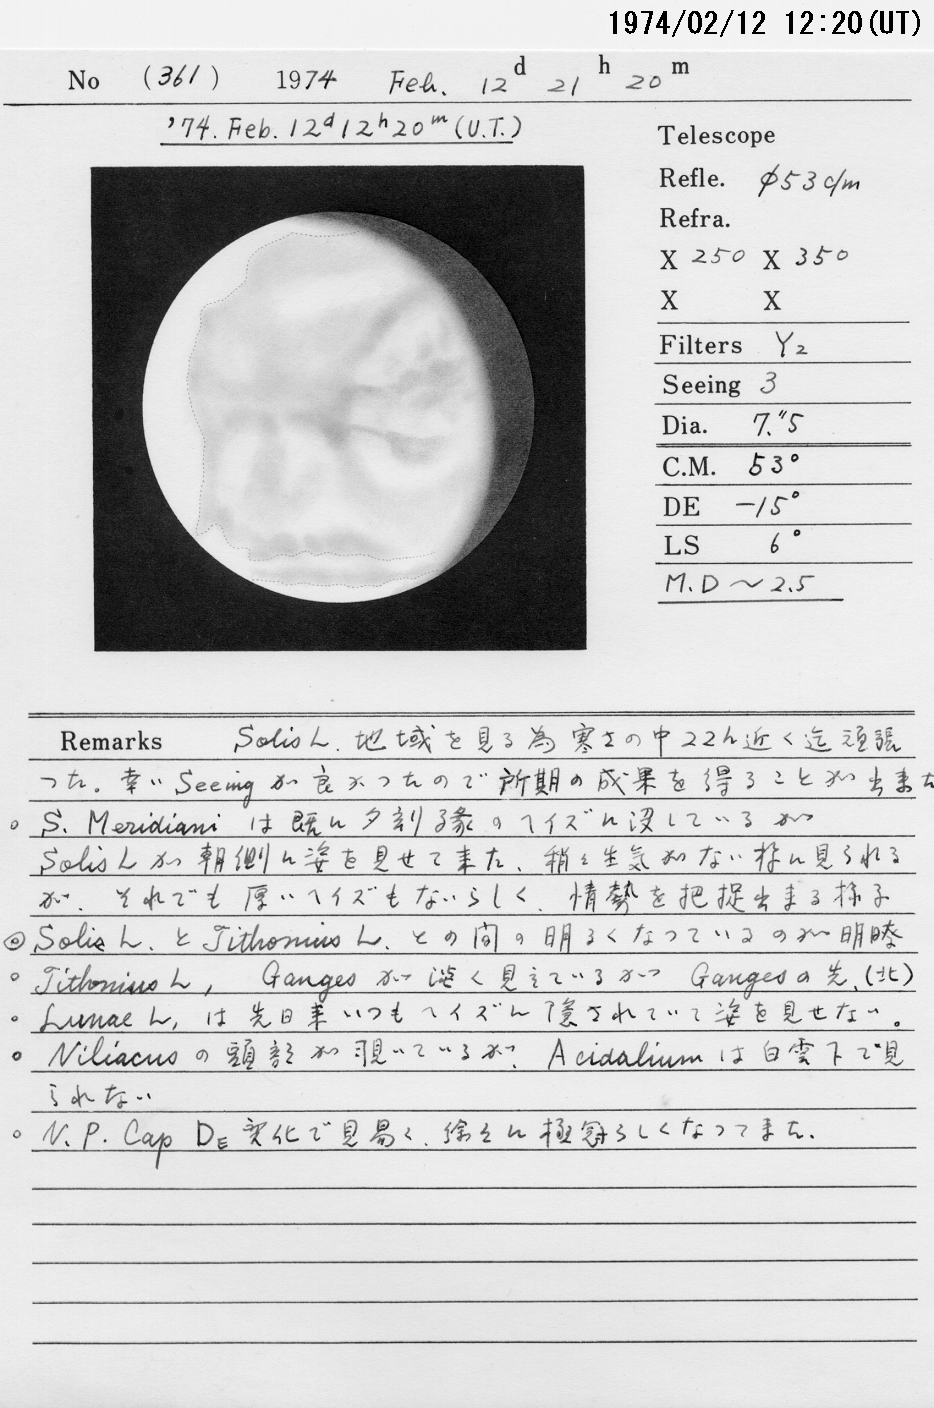 1974/02/12 12:20(UT)
No (361) 1974 Feb. 12d 21h 20m
'74. Feb. 12d 12h 20m (U.T.)
Telescope
Refle. φ53c/m
Refra.
X 250 X 350
X X
Filters Y2
Seeing 3
Dia. 7."5
C.M. 53°
DE -15°
LS 6°
M.D ~ 2.5
Remarks Solis L. 地域を見る為寒さの中22h近く迄頑張
った。幸いSeeingが良かったので所期の成果を得ることが出来た
○ S. Meridianiは既に夕刻縁のヘイズに没しているが
Solis Lが朝側に姿を見せて来た、稍々生気がない様に見られる
が、それでも厚いヘイズもないらしく、情勢を把捉出来る様子
◎ Solis L. とTithonius L. との間の明るくなっているのが明瞭
○ Tithonius L, Gangesが淡く見えているが Gangesの先、(北)
○ Lunae L, は先日来いつもヘイズに隠されていて姿を見せない。
○ Niliacusの頭部が覗いているが、Acidaliumは白雲下で見
られない
○ N. P. Cap DE変化で見易く、徐々に極冠らしくなってきた。